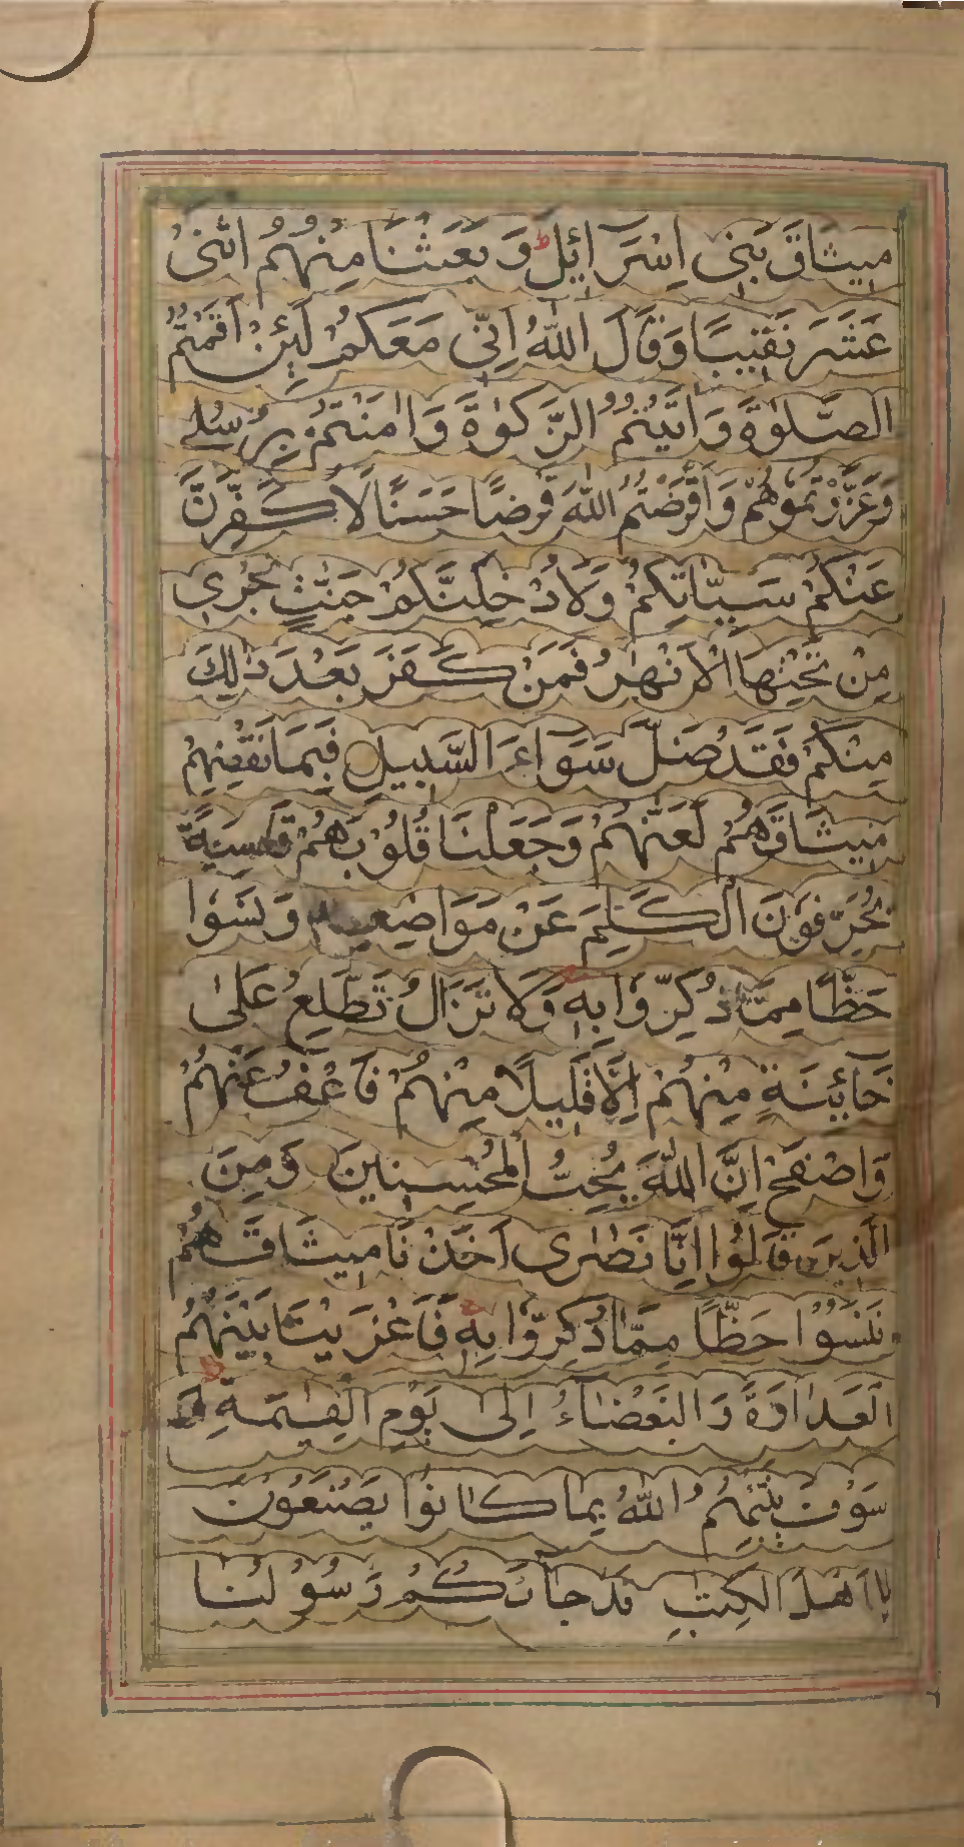 مِيثَاقَ بَنِى اِسْرَائِلَ وَبَعَثْنَا مِنْهُمُ اثْنَىْ
عَشَرَ نَقِيبًا وَقَالَ اللّٰهُ اِنِّى مَعَكُمْ لَئِنْ اَقَمْتُمُ
الصَّلٰوةَ وَاٰتَيْتُمُ الزَّكٰوةَ وَاٰمَنْتُمْ بِرُسُلِے
وَعَزَّرْتُمُوهُمْ وَاَقْرَضْتُمُ اللّٰهَ قَرْضًا حَسَنًا لَاُكَفِّرَنَّ
عَنْكُمْ سَيِّاٰتِكُمْ وَلَاُدْخِلَنَّكُمْ جَنّٰتٍ تَجْرِى
مِنْ تَحْتِهَا الْاَنْهٰرُ فَمَنْ كَفَرَ بَعْدَ ذٰلِكَ
مِنْكُمْ فَقَدْ ضَلَّ سَوَاءَ السَّبِيلِ فَبِمَا نَقْضِهِمْ
مِيثَاقَهُمْ لَعَنّٰهُمْ وَجَعَلْنَا قُلُوبَهُمْ قٰسِيَةً
يُحَرِّفُونَ الْكَلِمَ عَنْ مَوَاضِعِهِ وَنَسُوا
حَظًّا مِمَّا ذُكِّرُوا بِهٖ وَلَا تَزَالُ تَطَّلِعُ عَلٰى
خَائِنَةٍ مِنْهُمْ اِلَّا قَلِيلًا مِنْهُمْ فَاعْفُ عَنْهُمْ
وَاصْفَحْ اِنَّ اللّٰهَ يُحِبُّ الْمُحْسِنِينَ وَمِنَ
الَّذِينَ قَالُوا اِنَّا نَصٰرٰى اَخَذْنَا مِيثَاقَهُمْ
فَنَسُوا حَظًّا مِمَّا ذُكِّرُوا بِهٖ فَاَغْرَيْنَا بَيْنَهُمُ
الْعَدَاوَةَ وَالْبَغْضَاءَ اِلٰى يَوْمِ الْقِيٰمَةِ وَ
سَوْفَ يُنَبِّئُهُمُ اللّٰهُ بِمَا كَانُوا يَصْنَعُونَ
يَا اَهْلَ الْكِتٰبِ قَدْ جَاءَكُمْ رَسُولُنَا